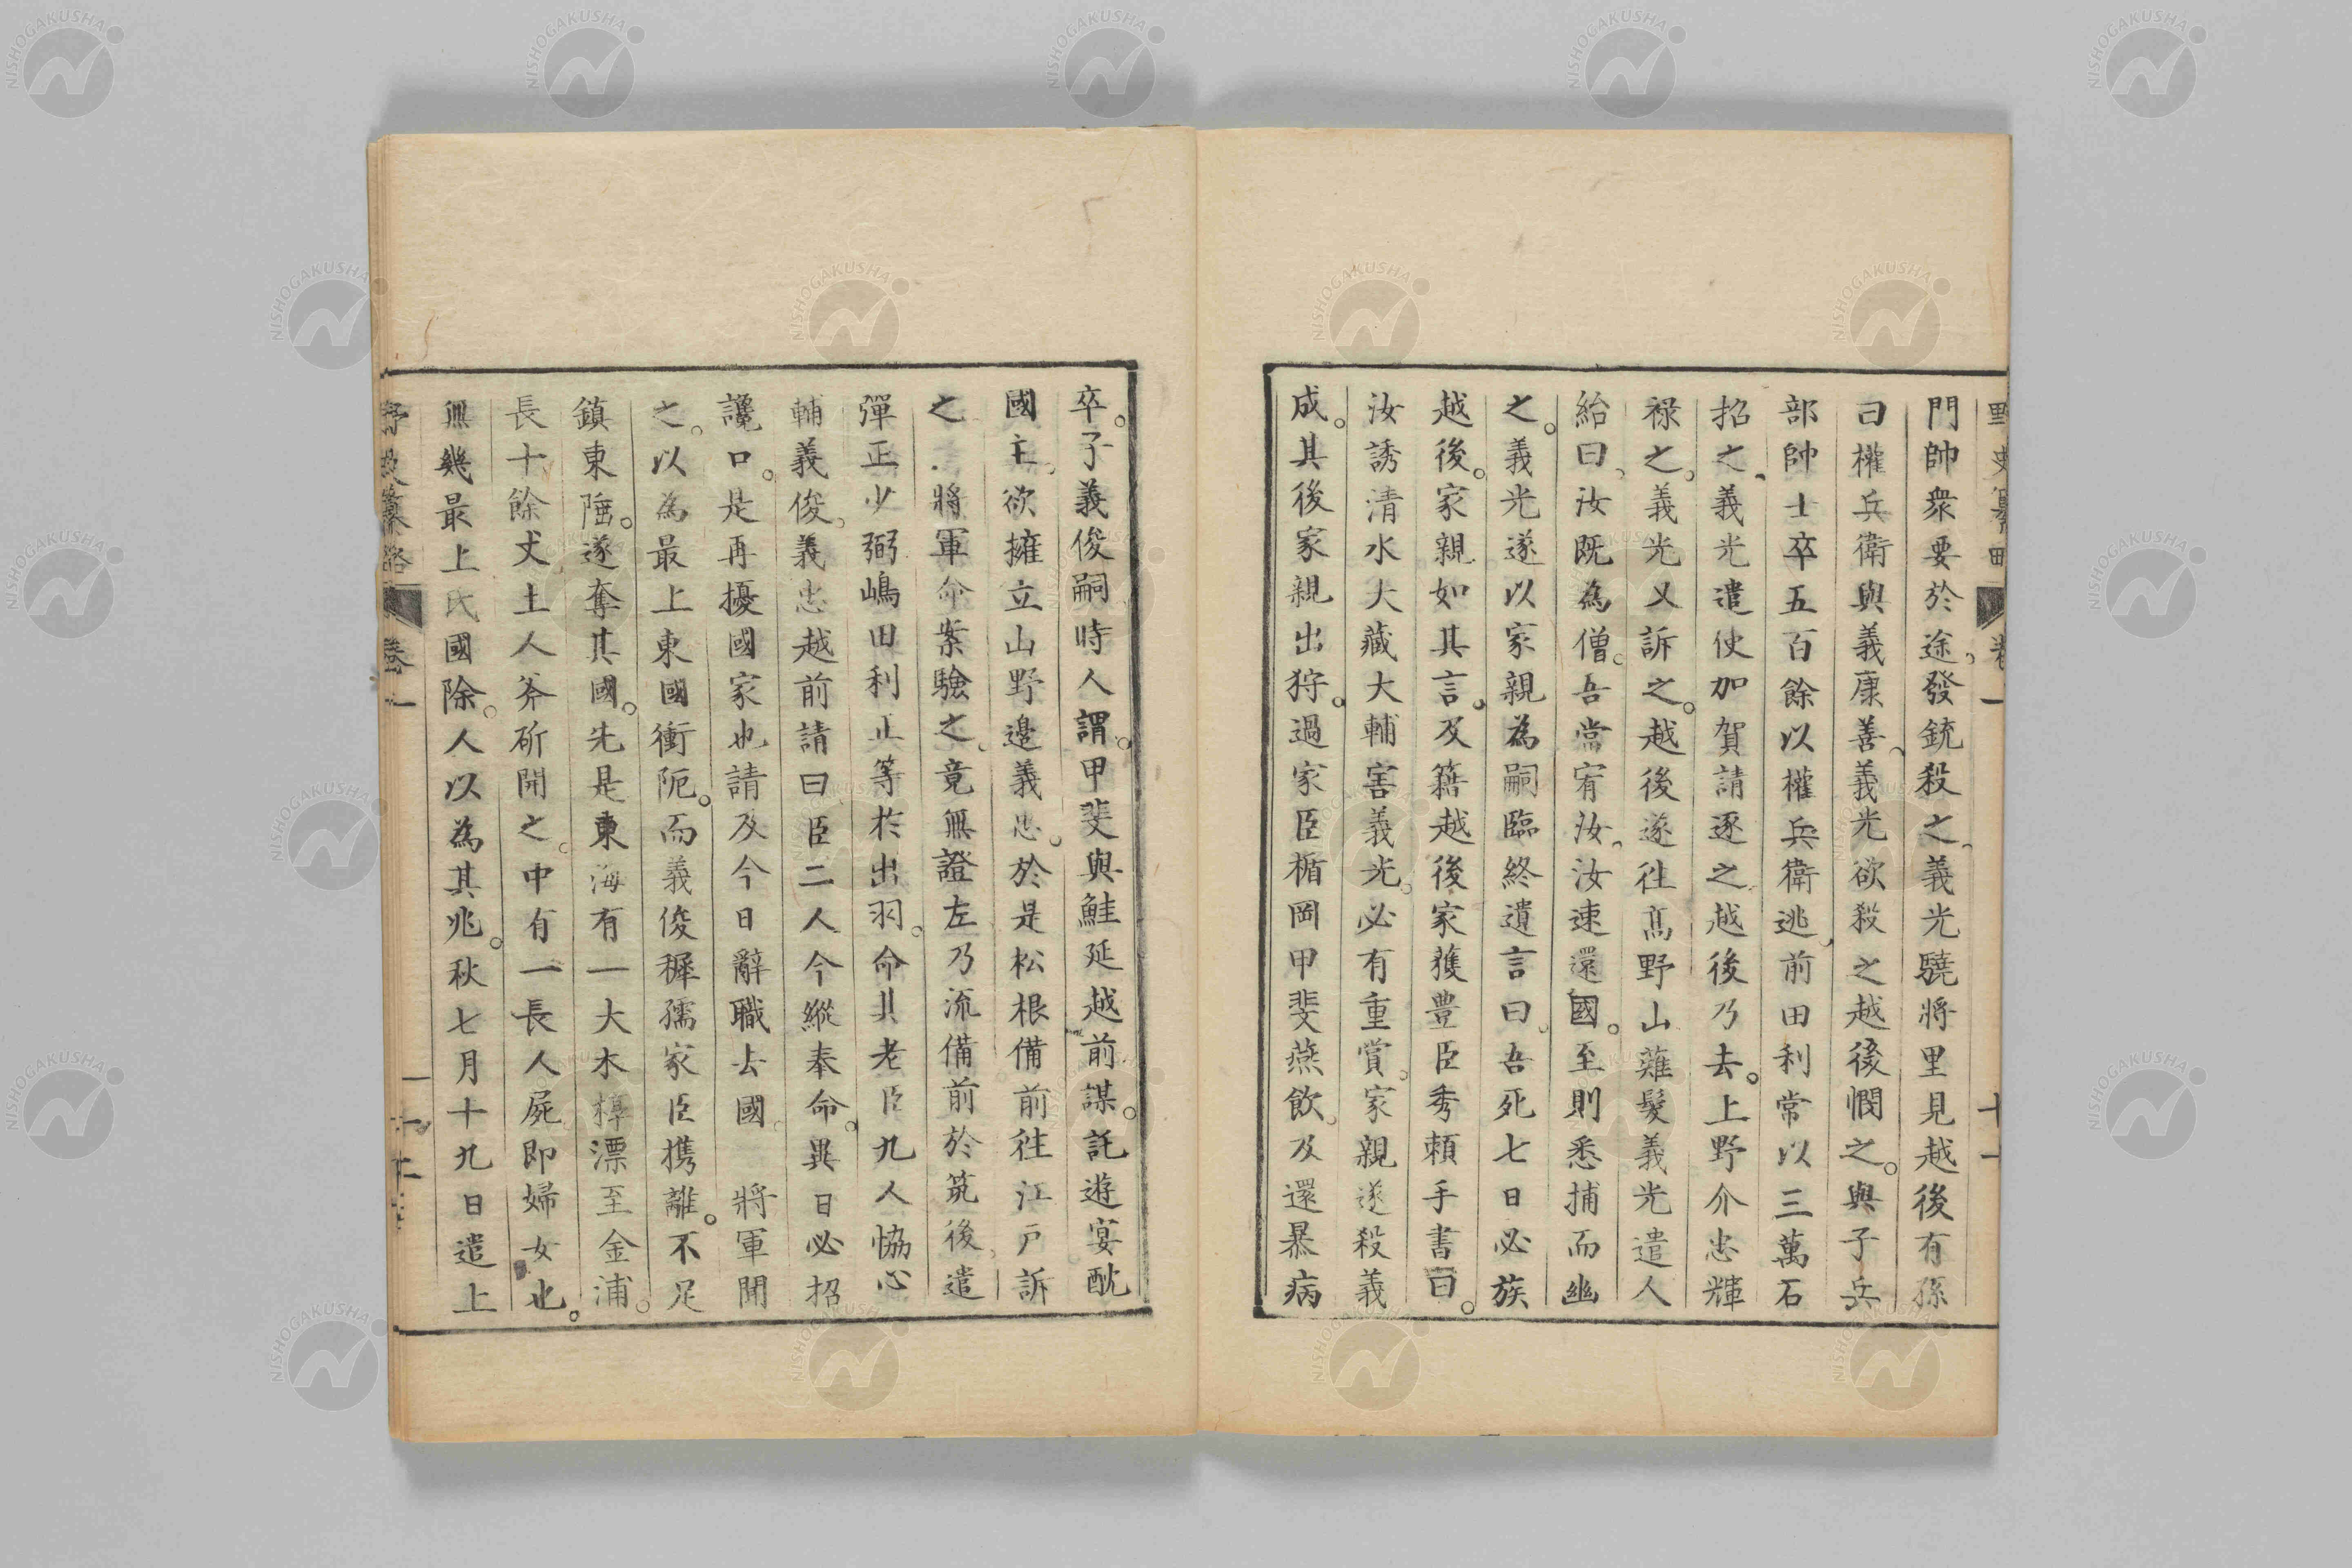 門帥衆要於途。發銃殺之。義光驍將里見越後有孫
曰權兵衛與義康善。義光欲殺之越後憫之。與子兵
部帥士卒五百餘以權兵衛逃。前田利常以三萬石
招之、義光遣使加賀請逐之越後乃去。上野介忠輝
祿之。義光又訴之。越後遂往髙野山薙髮義光遣人
紿曰。汝既為僧。吾當宥汝。汝速還國。至則悉捕而幽
之。義光遂以家親為嗣臨終遺言曰。吾死七日必族
越後。家親如其言。及籍越後家獲豊臣秀頼手書曰。
汝誘清水大藏大輔害義光。必有重賞。家親遂殺義
成。其後家親出狩。過家臣楯岡甲斐燕飲。及還暴病
卒。子義俊嗣時人謂。甲斐與鮭延越前謀。託遊宴酖
國主。欲擁立山野邊義忠。於是松根備前往江戸訴
之。將軍命案驗之。竟無證左乃流備前於筑後。遣
彈正少弼嶋田利正等於出羽。命其老臣九人恊心
輔義俊。義忠越前請曰臣二人今縱奉命。異日必招
讒口。是再擾國家也請及今日辭職去國 將軍聞
之。以為最上東國衝阨。而義俊穉孺家臣携離。不足
鎮東陲。遂奪其國。先是東海有一大木椁漂至金浦。
長十餘丈土人斧斫開之。中有一長人屍即婦女也。
無幾最上氏國除。人以為其兆。秋七月十九日遣上